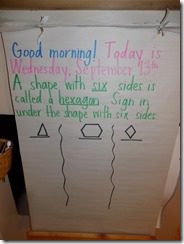 Good morning! Today is
Wednesday, September 13th.
A shape with six sides is
called a hexagon. Sign in
under the shape with six sides.